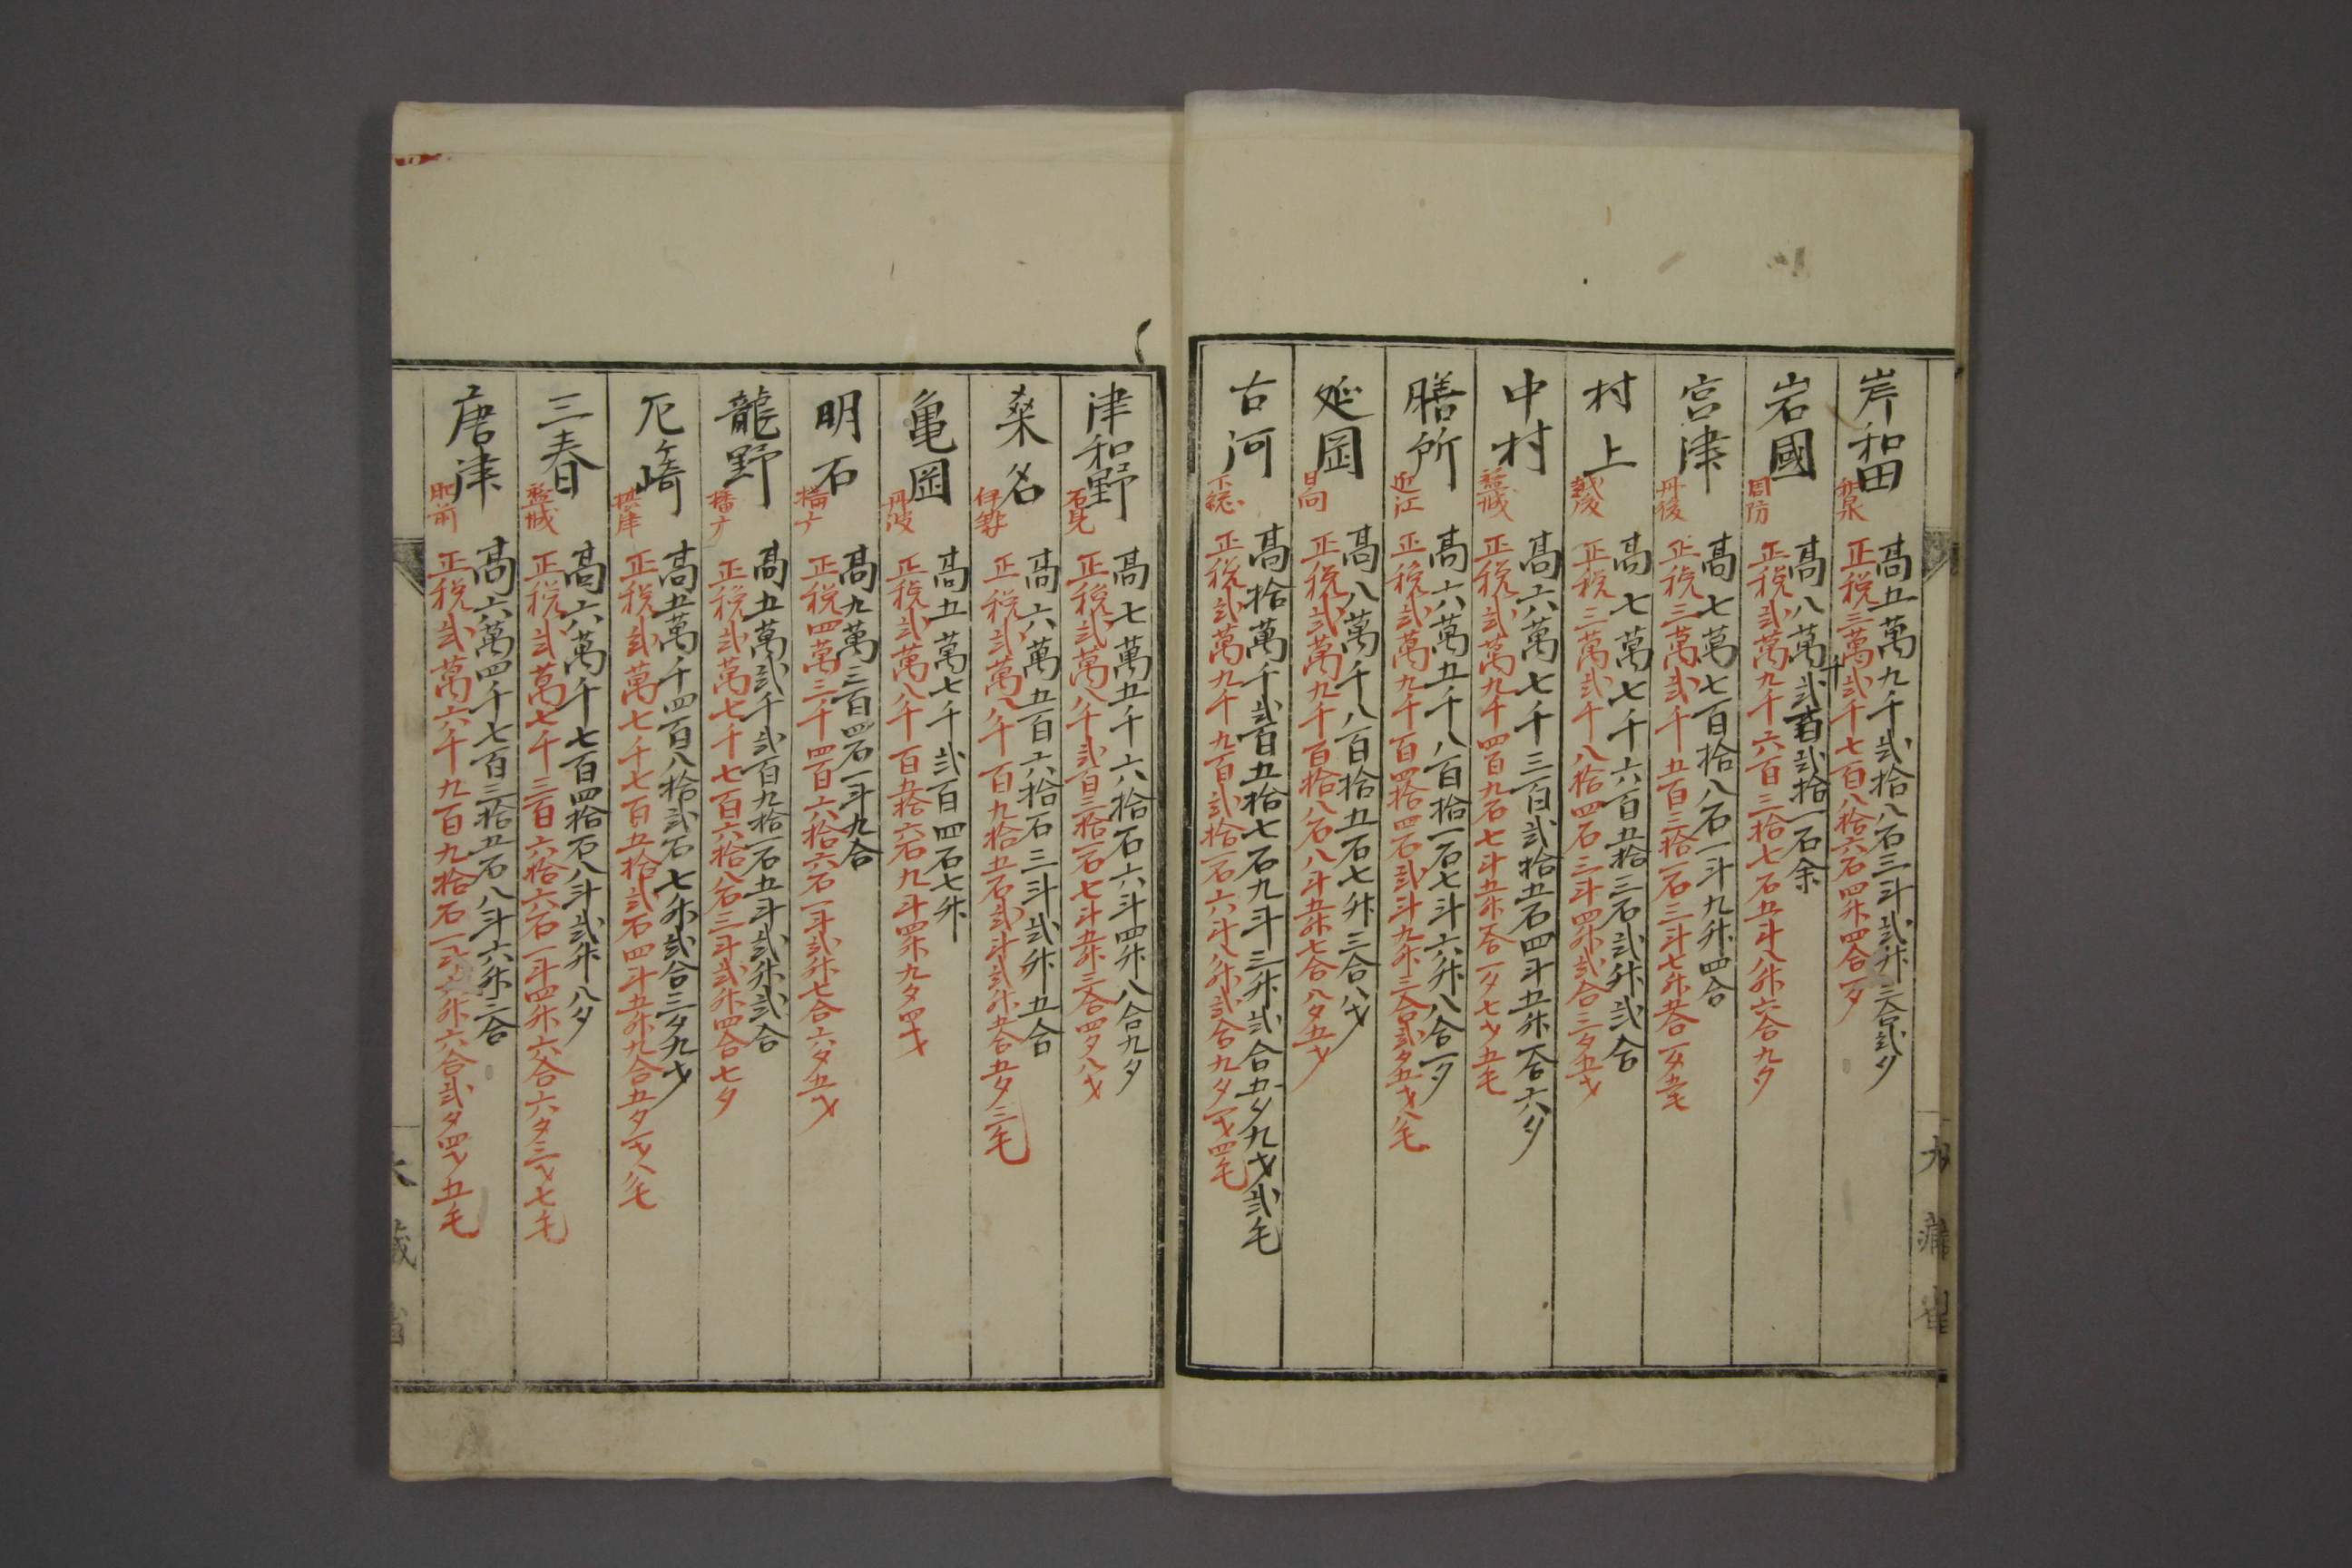 岸和田
和泉
高五萬九千弐拾八石三斗弐升三合弐夕
正税三萬弐千七百八拾六石四升四合一夕
岩國
周防
高八萬弐千百弐拾一石余
正税弐萬九千六百三拾七石五斗八升六合九夕
宮津
丹後
高七萬七百拾八石一斗九升四合
正税三萬弐千五百三拾一石三斗七升五合一夕五毛
村上
越後
高七萬七千六百五拾三石弐升弐合
正税三萬弐千八拾四石三斗四升弐合三夕五才
中村
磐城
高六萬七千三百弐拾五石四斗五升一合六夕
正税弐萬九千四百九石七斗五升一合一夕七才五毛
膳所
近江
高六萬五千八百拾一石七斗六升八合一夕
正税弐萬九千百四拾四石弐斗九升三合弐夕五才八毛
延岡
日向
高八萬千八百拾五石七升三合八才
正税弐萬九千百拾八石八斗五升七合八夕五才
古河
下総
高拾萬千弐百五拾七石九斗三升弐合五夕九才弐毛
正税弐萬九千九百弐拾一石六斗八升弐合九夕一才四毛
大藏省
津和野
石見
高七萬五千六拾石六斗四升八合九夕
正税弐萬八千弐百三拾一石七斗五升三合四夕八才
桑名
伊勢
高六萬五百六拾石三斗弐升五合
正税弐萬八千百九拾五石弐斗弐升五合五夕三毛
亀岡
丹波
高五萬七千弐百四石七升
正税弐萬八千百五拾六石九斗四升九夕四才
明石
播广
高九萬三百四石一斗九合
正税四萬三千四百六拾六石一斗弐升七合六夕五才
龍野
播广
高五萬弐千弐百九拾一石五斗弐升弐合
正税弐萬七千七百六拾八石三斗弐升四合七夕
尼ヶ崎
摂津
高五萬千四百八拾弐石七升弐合三夕九才
正税弐萬七千七百五拾弐石四斗五升九合五夕一才八毛
三春
磐城
高六萬千七百四拾石八斗弐升八夕
正税弐萬七千三百六拾六石一斗四升六合六夕三才七毛
唐津
肥前
高六萬四千七百三拾五石八斗六升三合
正税弐萬六千九百九拾石一斗升六合弐夕四才五毛
大藏省